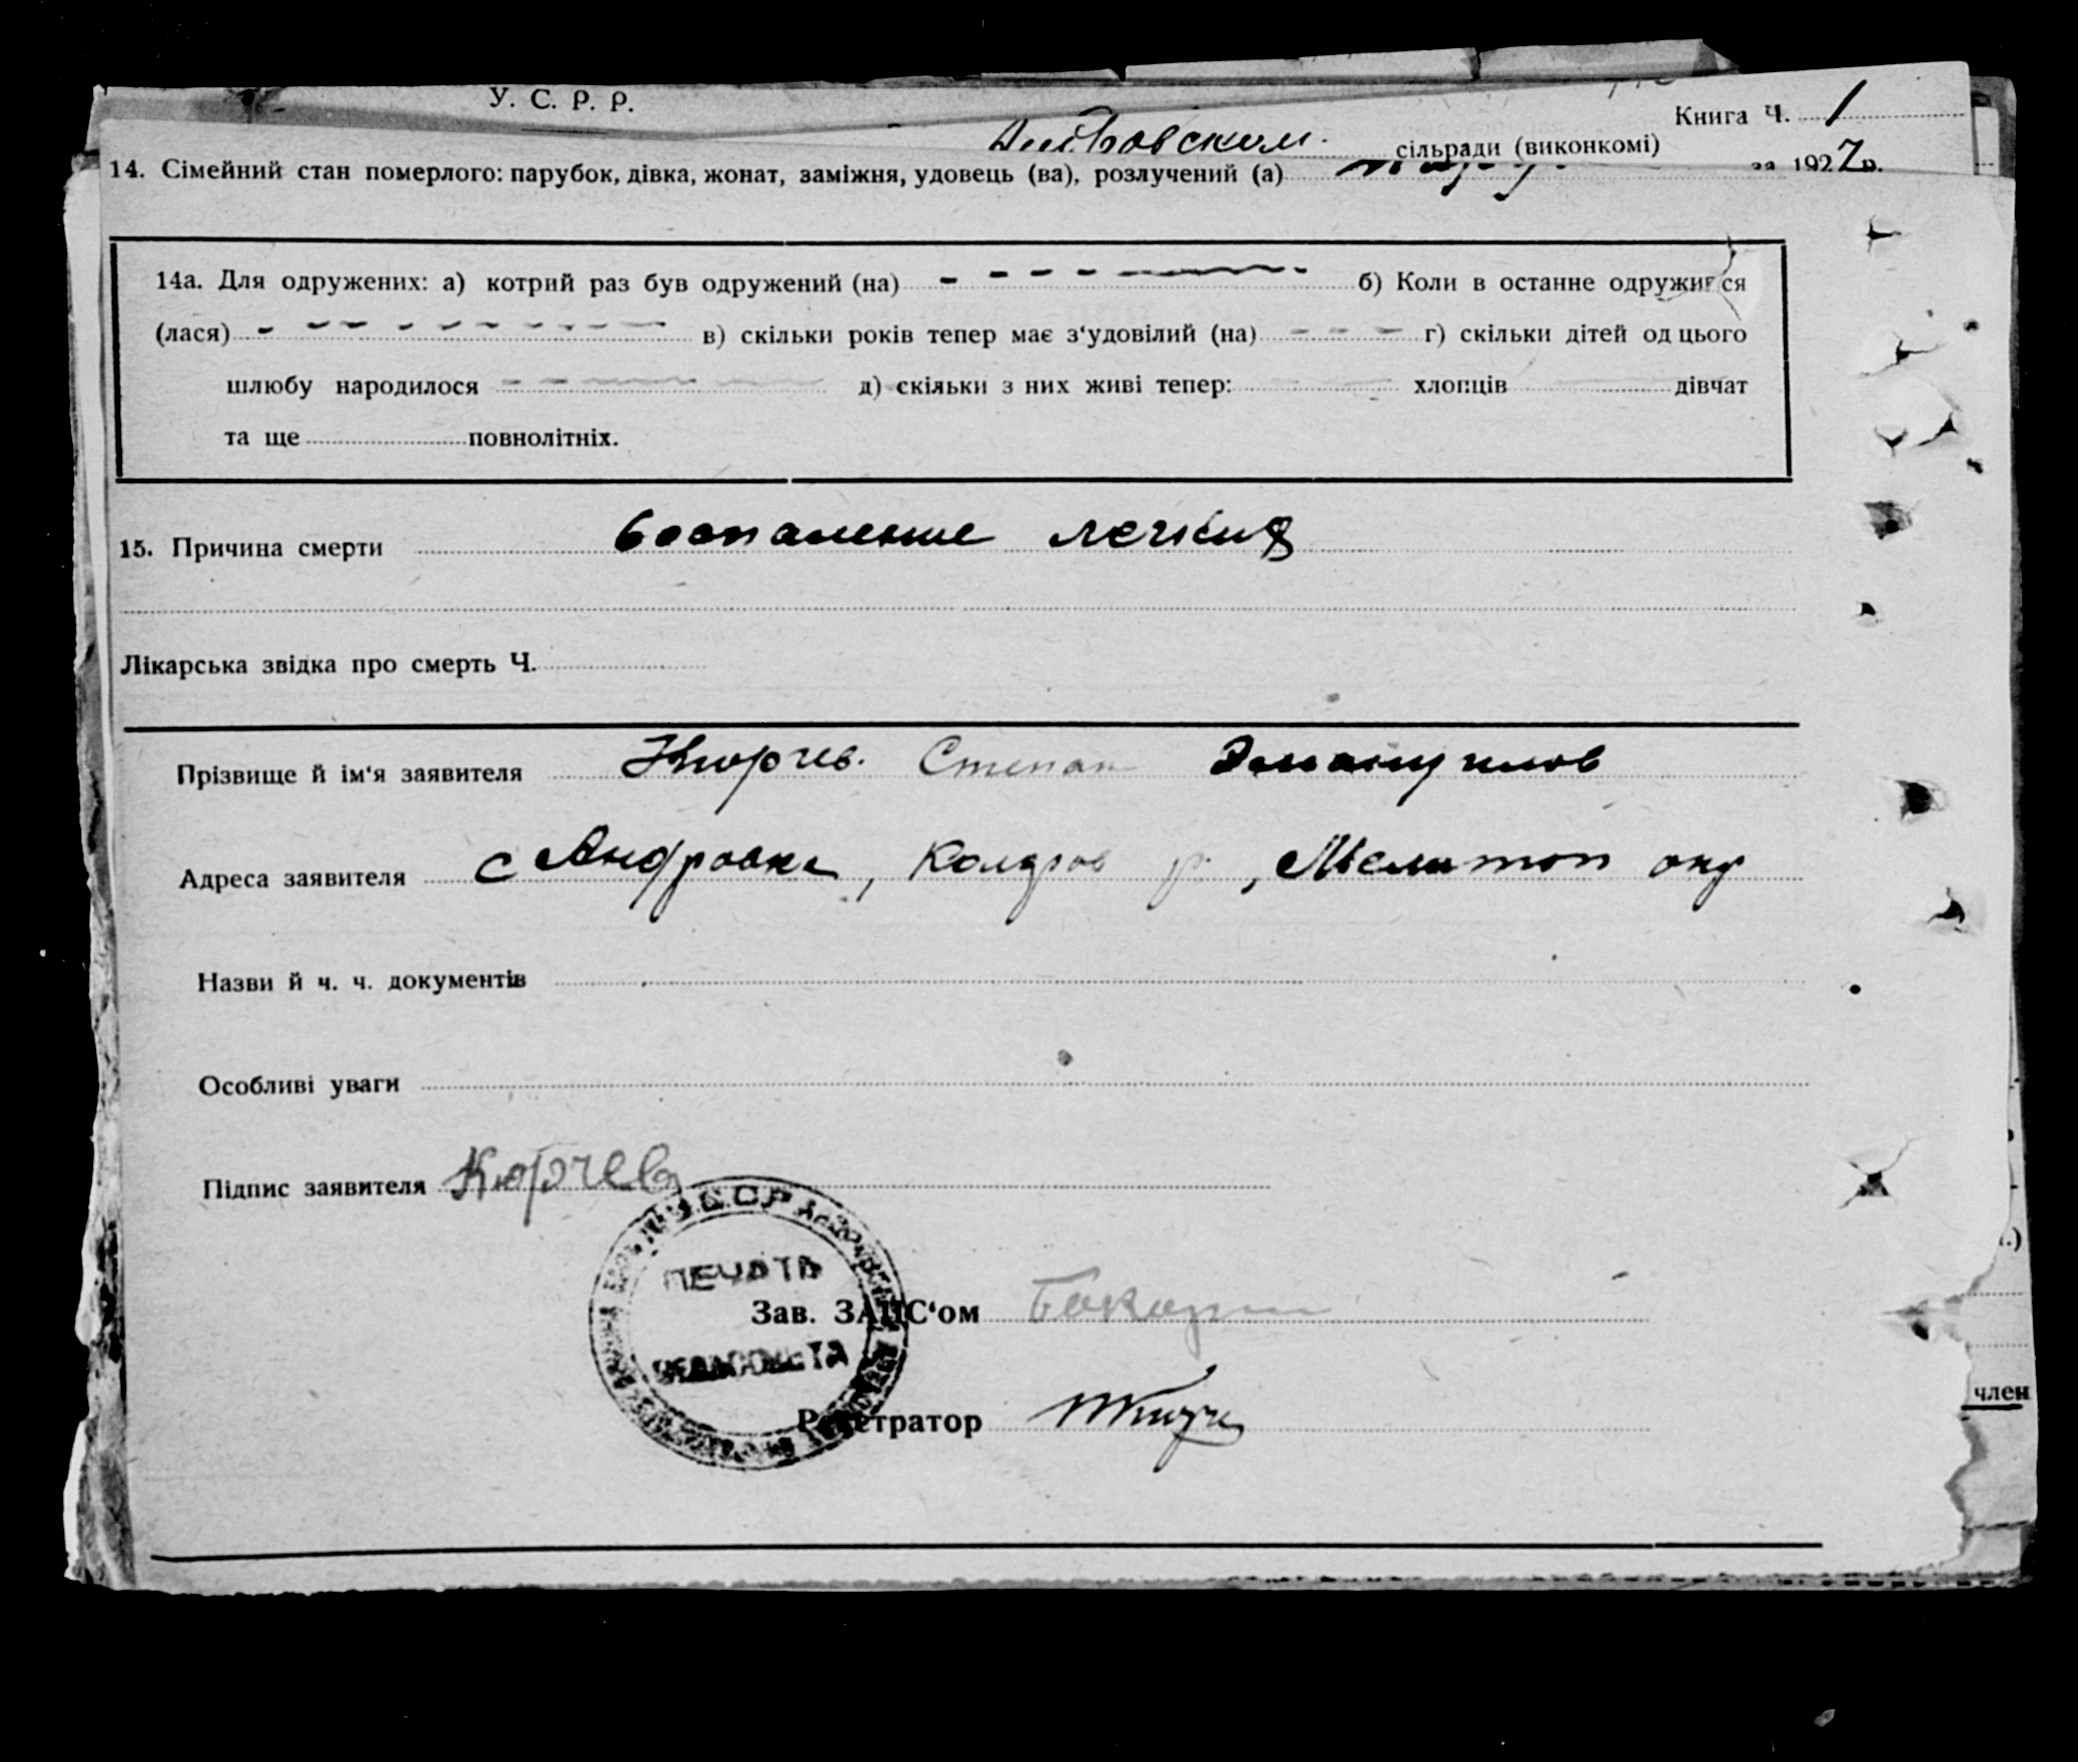 У. С. Р. Р.
Книга Ч. 1
сільради (виконкомі)
за 1927 р.
14. Сімейний стан померлого: парубок, дівка, жонат, заміжня, удовець (ва), розлучений (а)
14а. Для одружених: а) котрий раз був одружений (на) б) Коли в останне одружився
(лася) в) скільки років тепер має з‘удовілий (на) г) скільки дітей од цього
шлюбу народилося д) скільки з них живі тепер: хлопців дівчат
та ще повнолітніх.
15. Причина смерти воспаление легких
Лікарська звідка про смерть Ч.
Прізвище й ім‘я заявителя Кюрчев. Степан Эмануилов
Адреса заявителя с Андровка, р. , Мелитоп окр
Назви й ч. ч. документів
Особливі уваги
Підпис заявителя Кюрчев
ПЕЧАТЬ
Зав. ЗАПС‘ом
Реєстратор
член